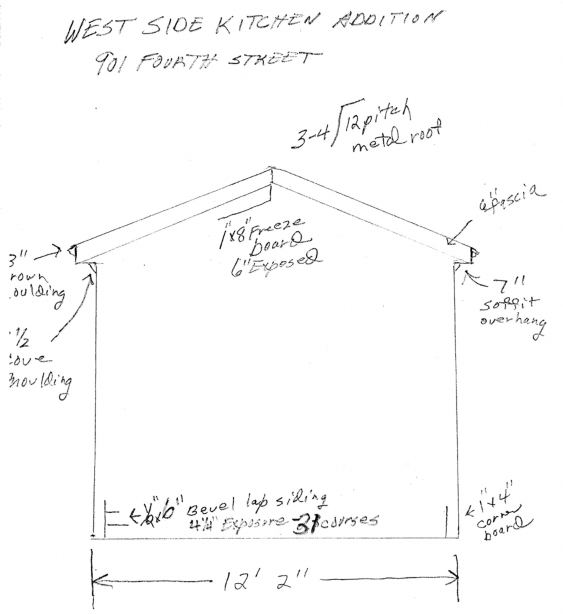 WEST SIDE KITCHEN ADDITION
901 FOURTH STREET
3-4 12 pitch
metal roof
6" fascia
1"x8" Freeze
board
6" Exposed
3"
rown
oulding
1/2
ove
moulding
7"
soffit
overhang
6" Bevel lap siding
Exposure - 31 courses
1"x4"
corner
board
12' 2"